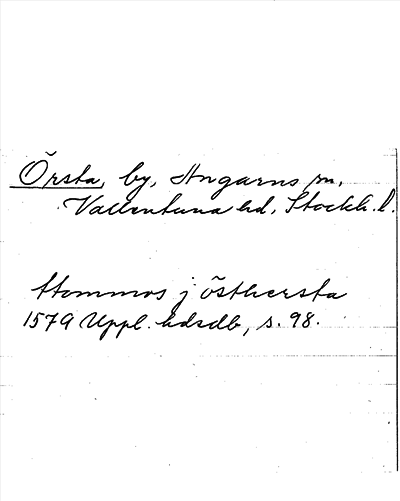 Örsta, by, Angarns sn,
Vallentuna hd, Stockh. l.
Hommos j östhersta
1579 Uppl. hdsdb, s. 98.